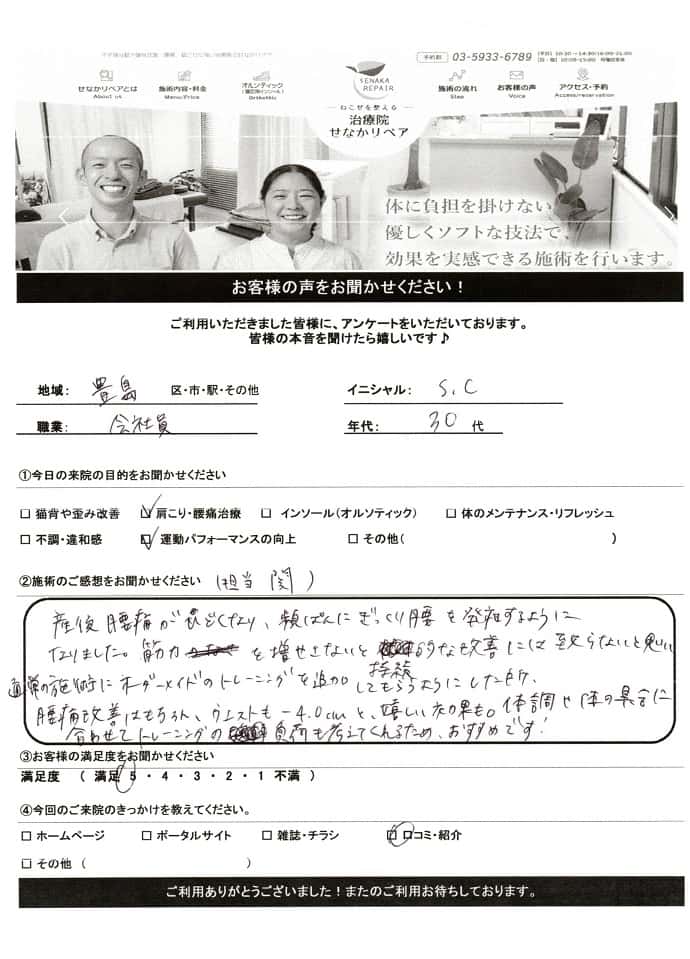 予約制 03-5933-6789
せなかリペアとは
About us
施術内容・料金
Menu/Price
オルソティック
(足圧測定インソール)
Orthothic
SENAKA
REPAIR
施術の流れ
Step
お客様の声
Voice
アクセス・予約
Access/reservation
ねこぜを整える
治療院
せなかリペア
体に負担を掛けない
優しくソフトな技法で、
効果を実感できる施術を行います。
お客様の声をお聞かせください!
ご利用いただきました皆様に、アンケートをいただいております。
皆様の本音を聞けたら嬉しいです♪
地域: 豊島 区・市・駅・その他
イニシャル: S.C
職業: 会社員
年代: 30 代
①今日の来院の目的をお聞かせください
□ 猫背や歪み改善 ☑ 肩こり・腰痛治療 □ インソール(オルソティック) □ 体のメンテナンス・リフレッシュ
□ 不調・違和感 ☑ 運動パフォーマンスの向上 □ その他( )
②施術のご感想をお聞かせください (担当 関 )
産後腰痛がひどくなり、頻ぱんにぎっくり腰を発症するように
なりました。筋力を増やさないと持続的な改善には至らないと思い
通常の施術にオーダーメイドのトレーニングを追加してもらうようにしたところ、
腰痛改善はもちろん、ウエストも-4.0cmと、嬉しい効果も。体調や体の具合に
合わせてトレーニングの負荷も考えてくれるため、おすすめです!
③お客様の満足度をお聞かせください
満足度 ( 満足 5 ・ 4 ・ 3 ・ 2 ・ 1 不満 )
④今回のご来院のきっかけを教えてください。
□ ホームページ □ ポータルサイト □ 雑誌・チラシ ☑ 口コミ・紹介
□ その他 ( )
ご利用ありがとうございました!またのご利用お待ちしております。